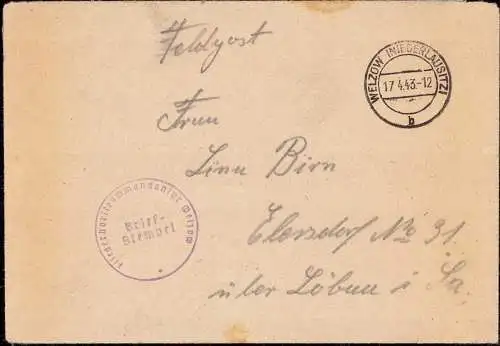 Feldpost
WELZOW (NIEDERLAUSITZ)
17.4.43.-12
b
Frau
Lina Birn
Ebersdorf No 31.
über Löbau i Sa.
Fliegerhorstkommandantur Welzow
Brief-
stempel